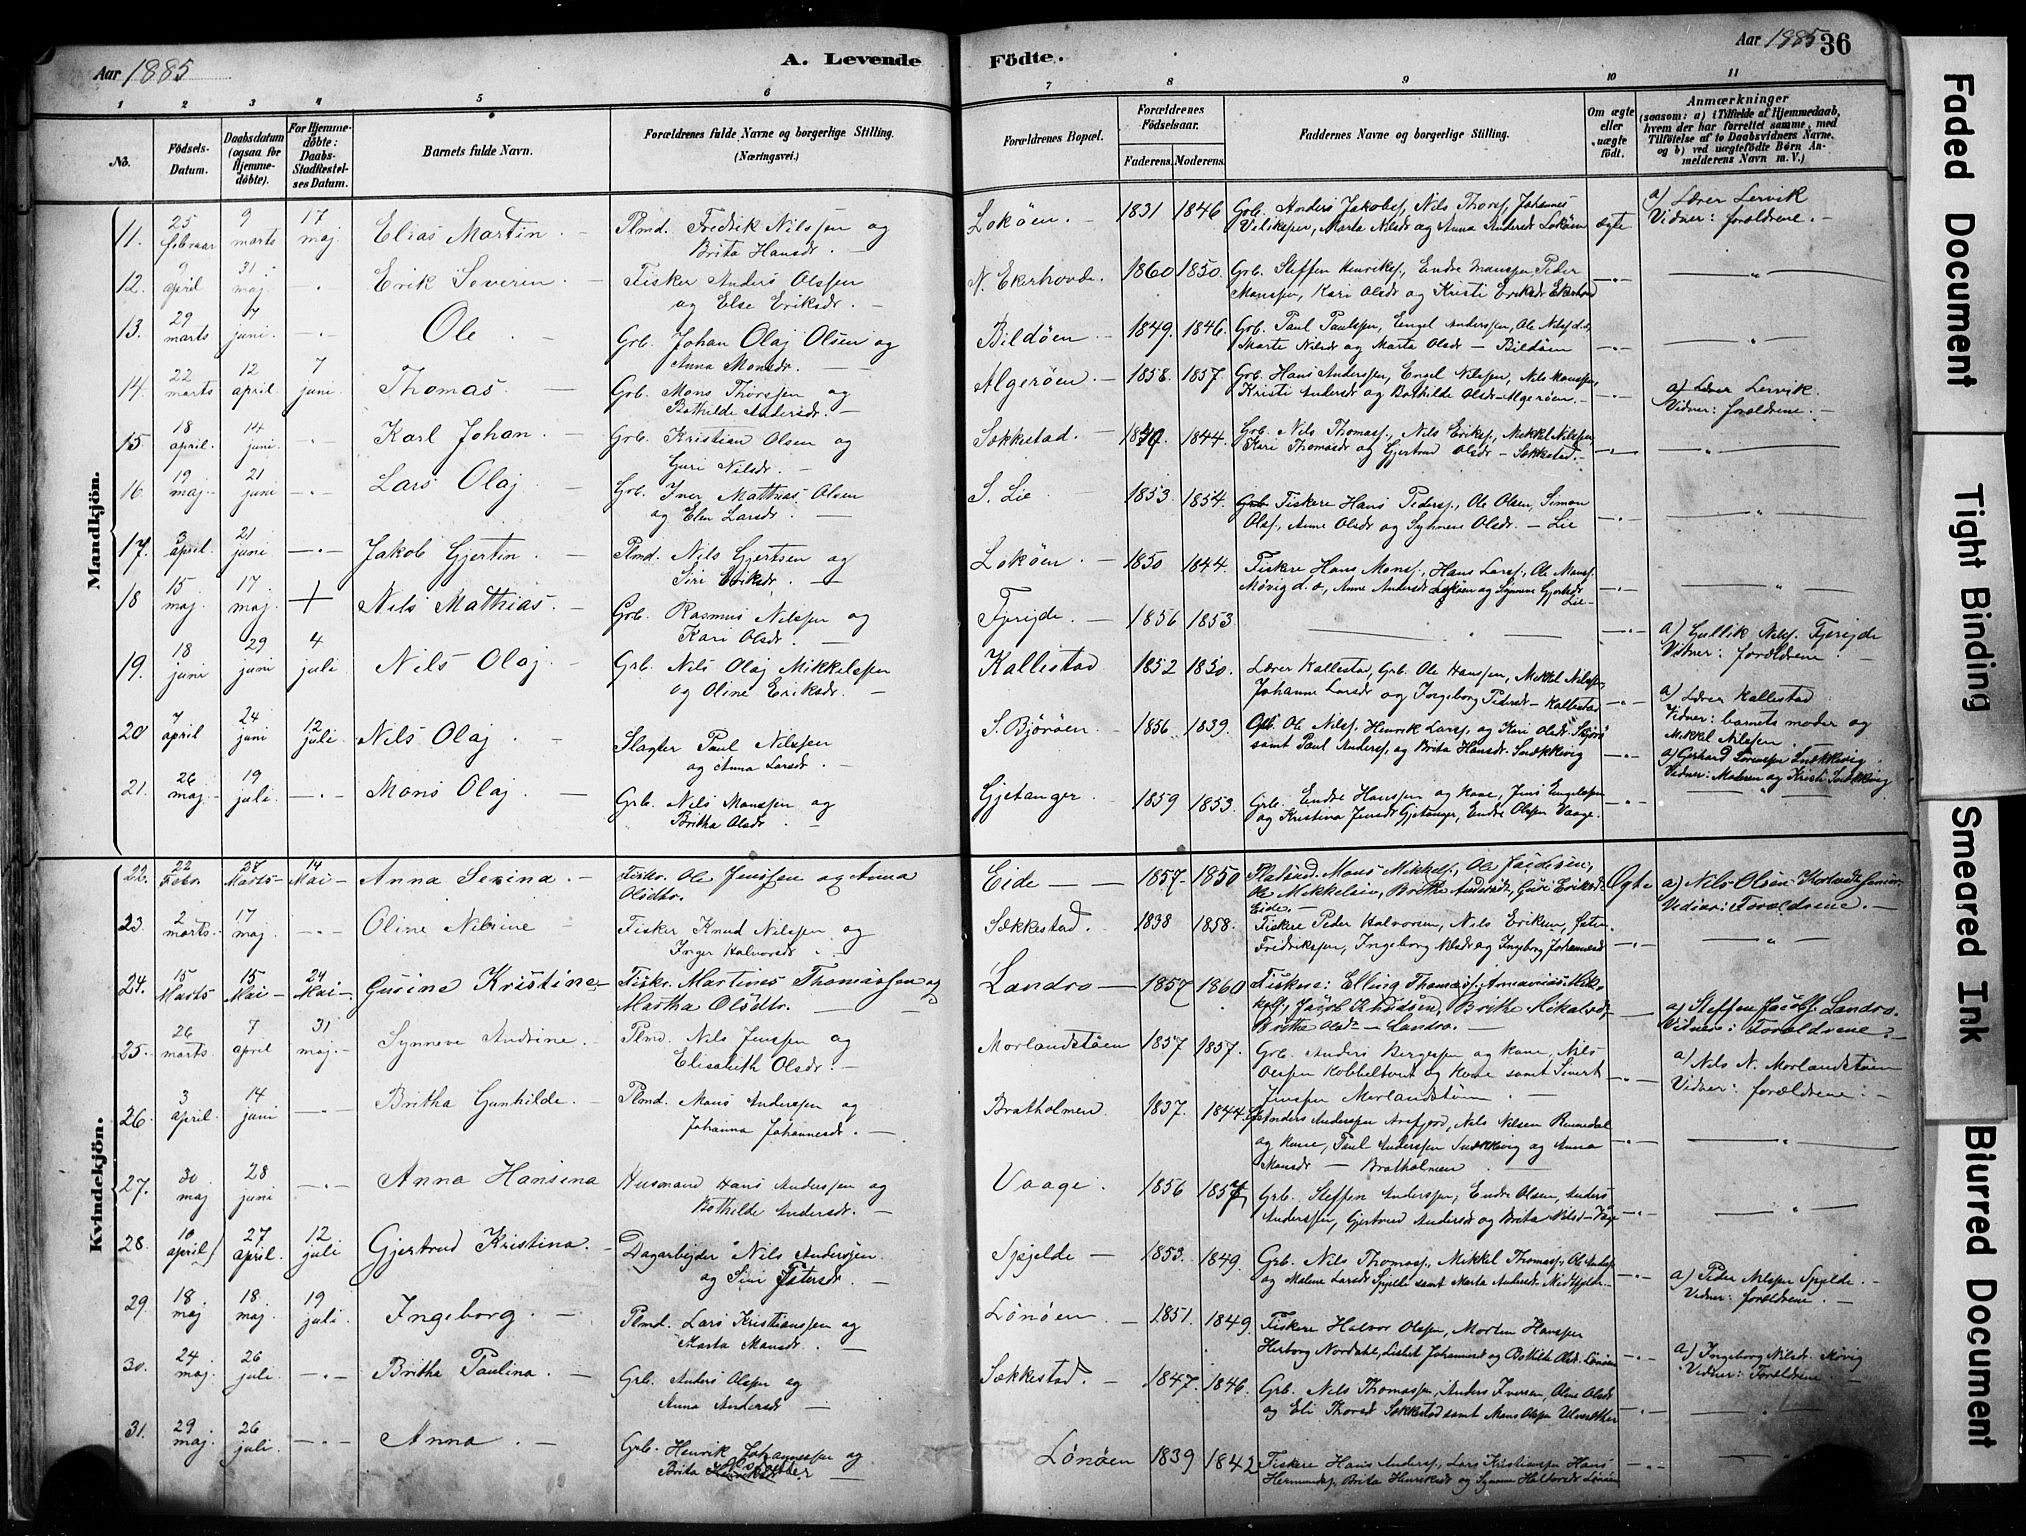 Aar 1885
A. Levende
Födte.
Aar 1885 36
1 2 3 4 5 6 7 8 9 10 11
No.
Födsels-
Datum.
Daabsdatum
(ogsaa for
Hjemme-
döbte).
For Hjemme-
döbte:
Daabs-
Stadfæstel-
ses Datum.
Barnets fulde Navn.
Forældrenes fulde Navne og borgerlige Stilling.
(Næringsvei.)
Forældrenes Bopæl.
Forældrenes
Födselsaar.
Faderens. Moderens.
Faddernes Navne og borgerlige Stilling.
Om ægte
eller
uægte
födt.
Anmærkninger
(saasom: a) i Tilfælde af Hjemmedaab,
hvem der har forrettet samme, med
Tilföielse af to Daabsvidners Navne.
og b) ved uægtefödte Börn An-
melderens Navn m. V.)
Mandkjön.
11. 25 februar 9 marts 17 maj Elias Martin. Plmd. Fredrik Nilssen og
Brita Hansdr.
Lokøen. 1831 1846 Grb. Anders Jakobs., Nils Thors., Johannes
Marta Nilsdr og Anna Andersdr Lokøen ægte
a) Lærer Lervik
Vidner: forældrene.
12. 9 april 31 maj Erik Severin Fisker Anders Olssen
og Else Eriksdr.
N. Ekerhovde. 1860 1850. Grb. Steffen Henriks., Endre Monssen, Peder
Monssen, Kari Olsdr og Kristi Eriksdr Ekerhovd
13. 29 marts 7 juni Ole Grb. Johan Olaj Olsen og
Anna Monsdr.
Bildøen 1849. 1846. Grb. Paul Paulssen, Engel Anderssen, Ole Nils. d.o,
Marte Nilsdr og Marta Olsdr - Bildøen
14. 22 marts 12 april 7 juni Thomas. Grb. Mons Thorssen og
Bothilde Andersdr.
Algerøen. 1858. 1857. Grb. Hans Anderssen, Engel Nilssen, Nils Monssen,
Kristi Andersdr og Bothilde Olsdr - Algerøen.
a) Lærer Lervik.
Vidner: forældrene.
15 18 april. 14 juni Karl Johan. Grb. Kristian Olsen og
Guri Nilsdr.
Søkkestad. 1844. Grb. Nils Thomass., Nils Eriks., Mikkel Nilssen,
Kari Thomasdr og Gjertrud Olsdr - Søkkestad.
16 19 maj 21 juni Lars Olaj Grb. Iver Matthias Olsen
og Elen Larsdr.
S. Lie 1853. 1854. Grb Fiskere Hans Peders., Ole Olsen, Simon
Ols., Anne Olsdr og Synneve Olsdr. - Lie
17. 3 april. 21 juni Jakob Gjertin Plmd. Nils Gjertsen og
Siri Eriksdr.
Lokøen. 1850 1844. Fiskere Hans Mons., Hans Lars., Ole Mons.
Møvig d.o, Anne Andersdr Lokøen og Synneve Gjertsdr
Lie
18 15 maj. 17 maj + Nils Matthias. Grb. Rasmus Nilssen og
Kari Olsdr.
Fjerejde. 1856 1853.
a) Gullik Nils. Fjerejde
Vidner: forældrene
19. 18 juni 29 juni 4 juli Nils Olaj Grb. Nils Olaj Mikkelssen
og Oline Eriksdr.
Kallestad 1852 1850. Lærer Kallestad, Grb. Ole Hanssen, Mikkel Nilssen,
Johanne Larsdr og Ingeborg Pedersdr - Kallestad
a) Lærer Kallestad
Vidner: barnets moder og
Mikkel Nilssen
20 7 april 24 juni 12 juli Nils Olaj Slagter Paul Nilssen
og Anna Larsdr.
S. Bjørøen 1856. 1839. Grb. Ole Nils., Henrik Lars., og Kari Olsdr
samt Paul Anders., og Brita Hansdr. Snækkevig
a) Gerhard Sørenssen Snækkevig
Vidner: Moderen og Kristi Snækkevig
21. 26 maj 19 juli Mons Olaj Grb. Nils Monssen og
Britha Olsdr.
Gjetanger 1859 1853. Grb. Endre Hanssen og kone, Jens Engelssen
og Kristina Jensdr Gjetanger, Endre Olssen Vaage.
Kvindekjön.
22. 22 Febr. 27 Marts 14 Mai Anna Serina. Fisker Ole Jenssen og Anna
Olsdtr.
Eide 1857. 1850 Mons Mikkels., Ole
Ole Mikkelsen, Brithe Andersdr, Guri Eriksdr
Eide.
Ægte a) Nils Olsen
Vidner: Forældrene.
23. 2 marts 17 maj Oline Nilsine Fisker Knud Nilssen og
Inger Halvorsdr
Søkkestad. 1838 1858. Fiskere Peder Halvorsen, Nils Eriksen,
Fredrikssen, Ingeborg Nilsdr og Ingeborg Johannesdr
24. 15 Marts 15 Mai 24 Mai Gurine Kristine Fisker Martines Thomassen og
Martha Olsdtr.
Landro 1857 1860 Fiskere: Elling Thomass.,
Jacob Knudsen, Brithe Mikalsdr
Brithe Olsdr - Landro.
a) Steffen Jacobs. Landro.
Vidner: Forældrene
25. 26 marts 7 april 31 maj. Synneve Andrine. Plmd. Nils Jenssen og
Elisabeth Olsdr.
Morlandstøen 1857 1857. Grb. Anders Bergessen og kone, Nils
Olssen Kobbeltvet og kone samt Sivert
Jenssen Morlandstøen
a) Nils N. Morlandstøen
Vidner: forældrene
26. 3 april 14 juni Britha Gunhilde. Plmd. Mons Anderssen og
Johanna Johannesdr.
Bratholmen. 1837. 1844. Anders Anderssen Arefjord, Nils Nilsen
og kone, Paul Anderssen Snækkevig og Anna
Monsdr - Bratholmen
27. 30 maj 28 juni Anna Hansina Husmand Hans Anderssen og
Bothilde Andersdr.
Vaage. 1856 1857 Grb. Steffen Anderssen, Endre Olsen, Anders
Anderssen, Gjertrud Andersdr og Brita Nilsdr - Våge
28. 10 april 27 april. 12 juli Gjertrud Kristina. Dagarbejder Nils Anderssen
og Siri Petersdr.
Spjelde 1853. 1849. Grb. Nils Thomass., Mikkel Thomass., Ole
og Malene Larsdr Spjelde samt Marta Andersdr
a) Peder Nilssen Spjelde.
Vidner: forældrene.
29. 18 maj 18 maj. 19 juli. Ingeborg. Plmd. Lars Kristianssen og
Marta Monsdr.
Lønøen 1851. 1849. Fiskere Halvor Olssen, Morten Hanssen
Herborg Nordahl, Lisbet Johannesdr og Bothilde Olsdr. Lønøen
a) Ingeborg Nilsdr. Møvig
Vidner: Forældrene.
30. 24 maj. 26 juli. Britha Paulina. Grb. Anders Olssen og
Anna Andersdr
Søkkestad 1847. 1846. Grb. Nils Thomassen, Anders Iversen, Oline Olsdr
og Eli Thorsdr Søkkestad samt Mons Olssen Ulvesætter
31. 29 maj. 26 juli. Anna Grb. Henrik Johannessen og
Brita
Lønøen 1839 1842 Fiskere Hans Anders., Lars Kristianssen, Hans
Hermunds., Brita Henriksdr og Synneve Halvorsdr Lønøen
Faded Document
Tight Binding
Smeared Ink
Blurred Document